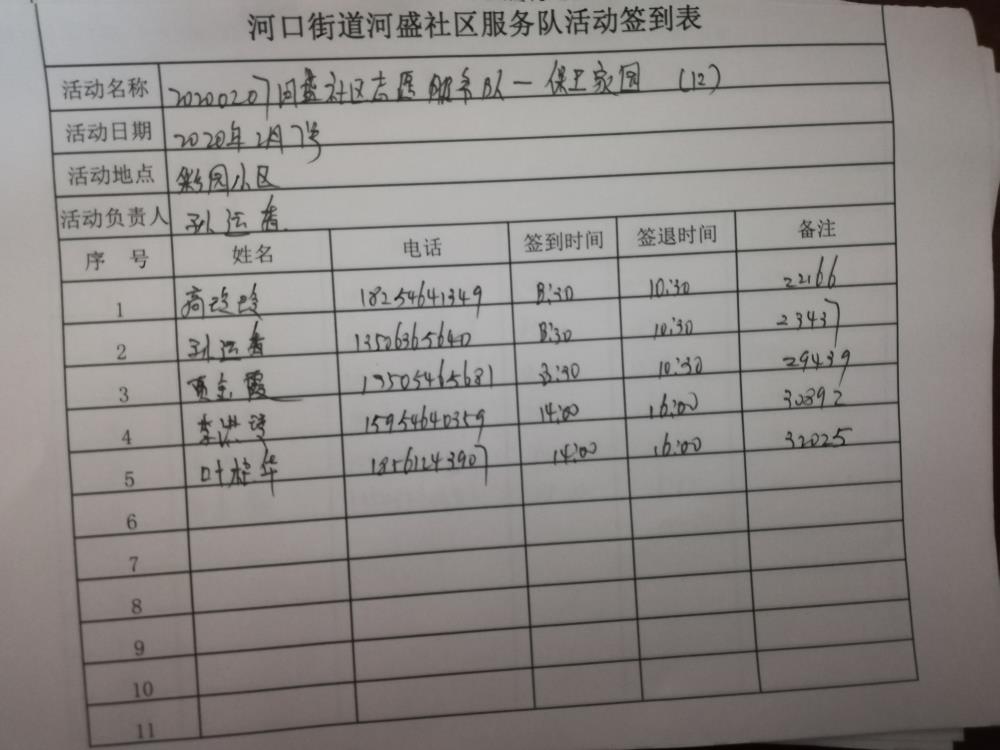 河口街道河盛社区服务队活动签到表
活动名称 20200207河盛社区志愿服务队一保卫家园 (12)
活动日期 2020年2月7号
活动地点 彩园小区
活动负责人 孙运香
序 号 姓名 电话 签到时间 签退时间 备注
1 高玲玲 18254641349 8:30 10:30 22166
2 孙运香 13506365640 8:30 10:30 23437
3 贾金霞 13505465681 8:30 10:30 29439
4 李洪 15954640359 14:00 16:00 30892
5 叶桂华 18561243907 14:00 16:00 32025
6
7
8
9
10
11